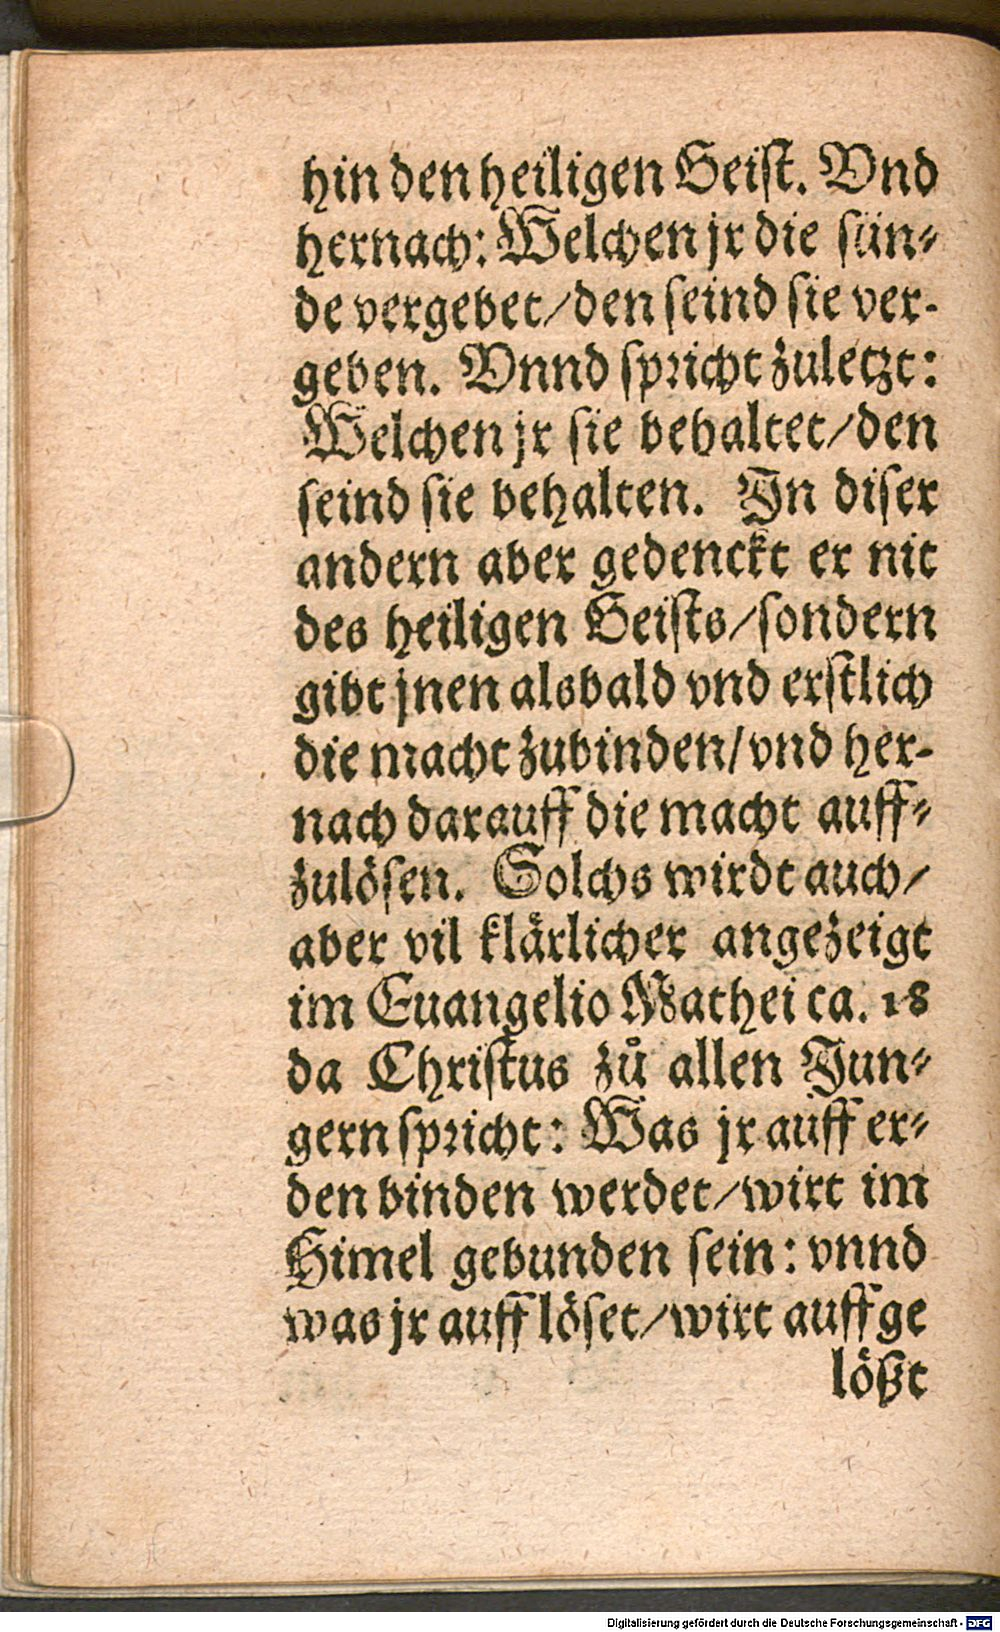 hin den heiligen Geiſt. Vnd
hernach: Welchen jr die ſün⸗
de vergebet/den ſeind ſie ver-
geben. Vnnd ſpricht zuletzt:
Welchen jr ſie behaltet/den
ſeind ſie behalten. In diſer
andern aber gedenckt er nit
des heiligen Geiſts/ſondern
gibt jnen alsbald vnd erſtlich
die macht zubinden/vnd her-
nach darauff die macht auff⸗
zulöſen. Solchs wirdt auch/
aber vil klärlicher angezeigt
im Euangelio Mathei ca. 18
da Chriſtus zů allen Jun⸗
gern ſpricht: Was jr auff er⸗
den binden werdet/wirt im
Himel gebunden ſein: vnnd
was jr auff löſet/wirt auffge
lößt
Digitalisierung gefördert durch die Deutsche Forschungsgemeinschaft - DFG